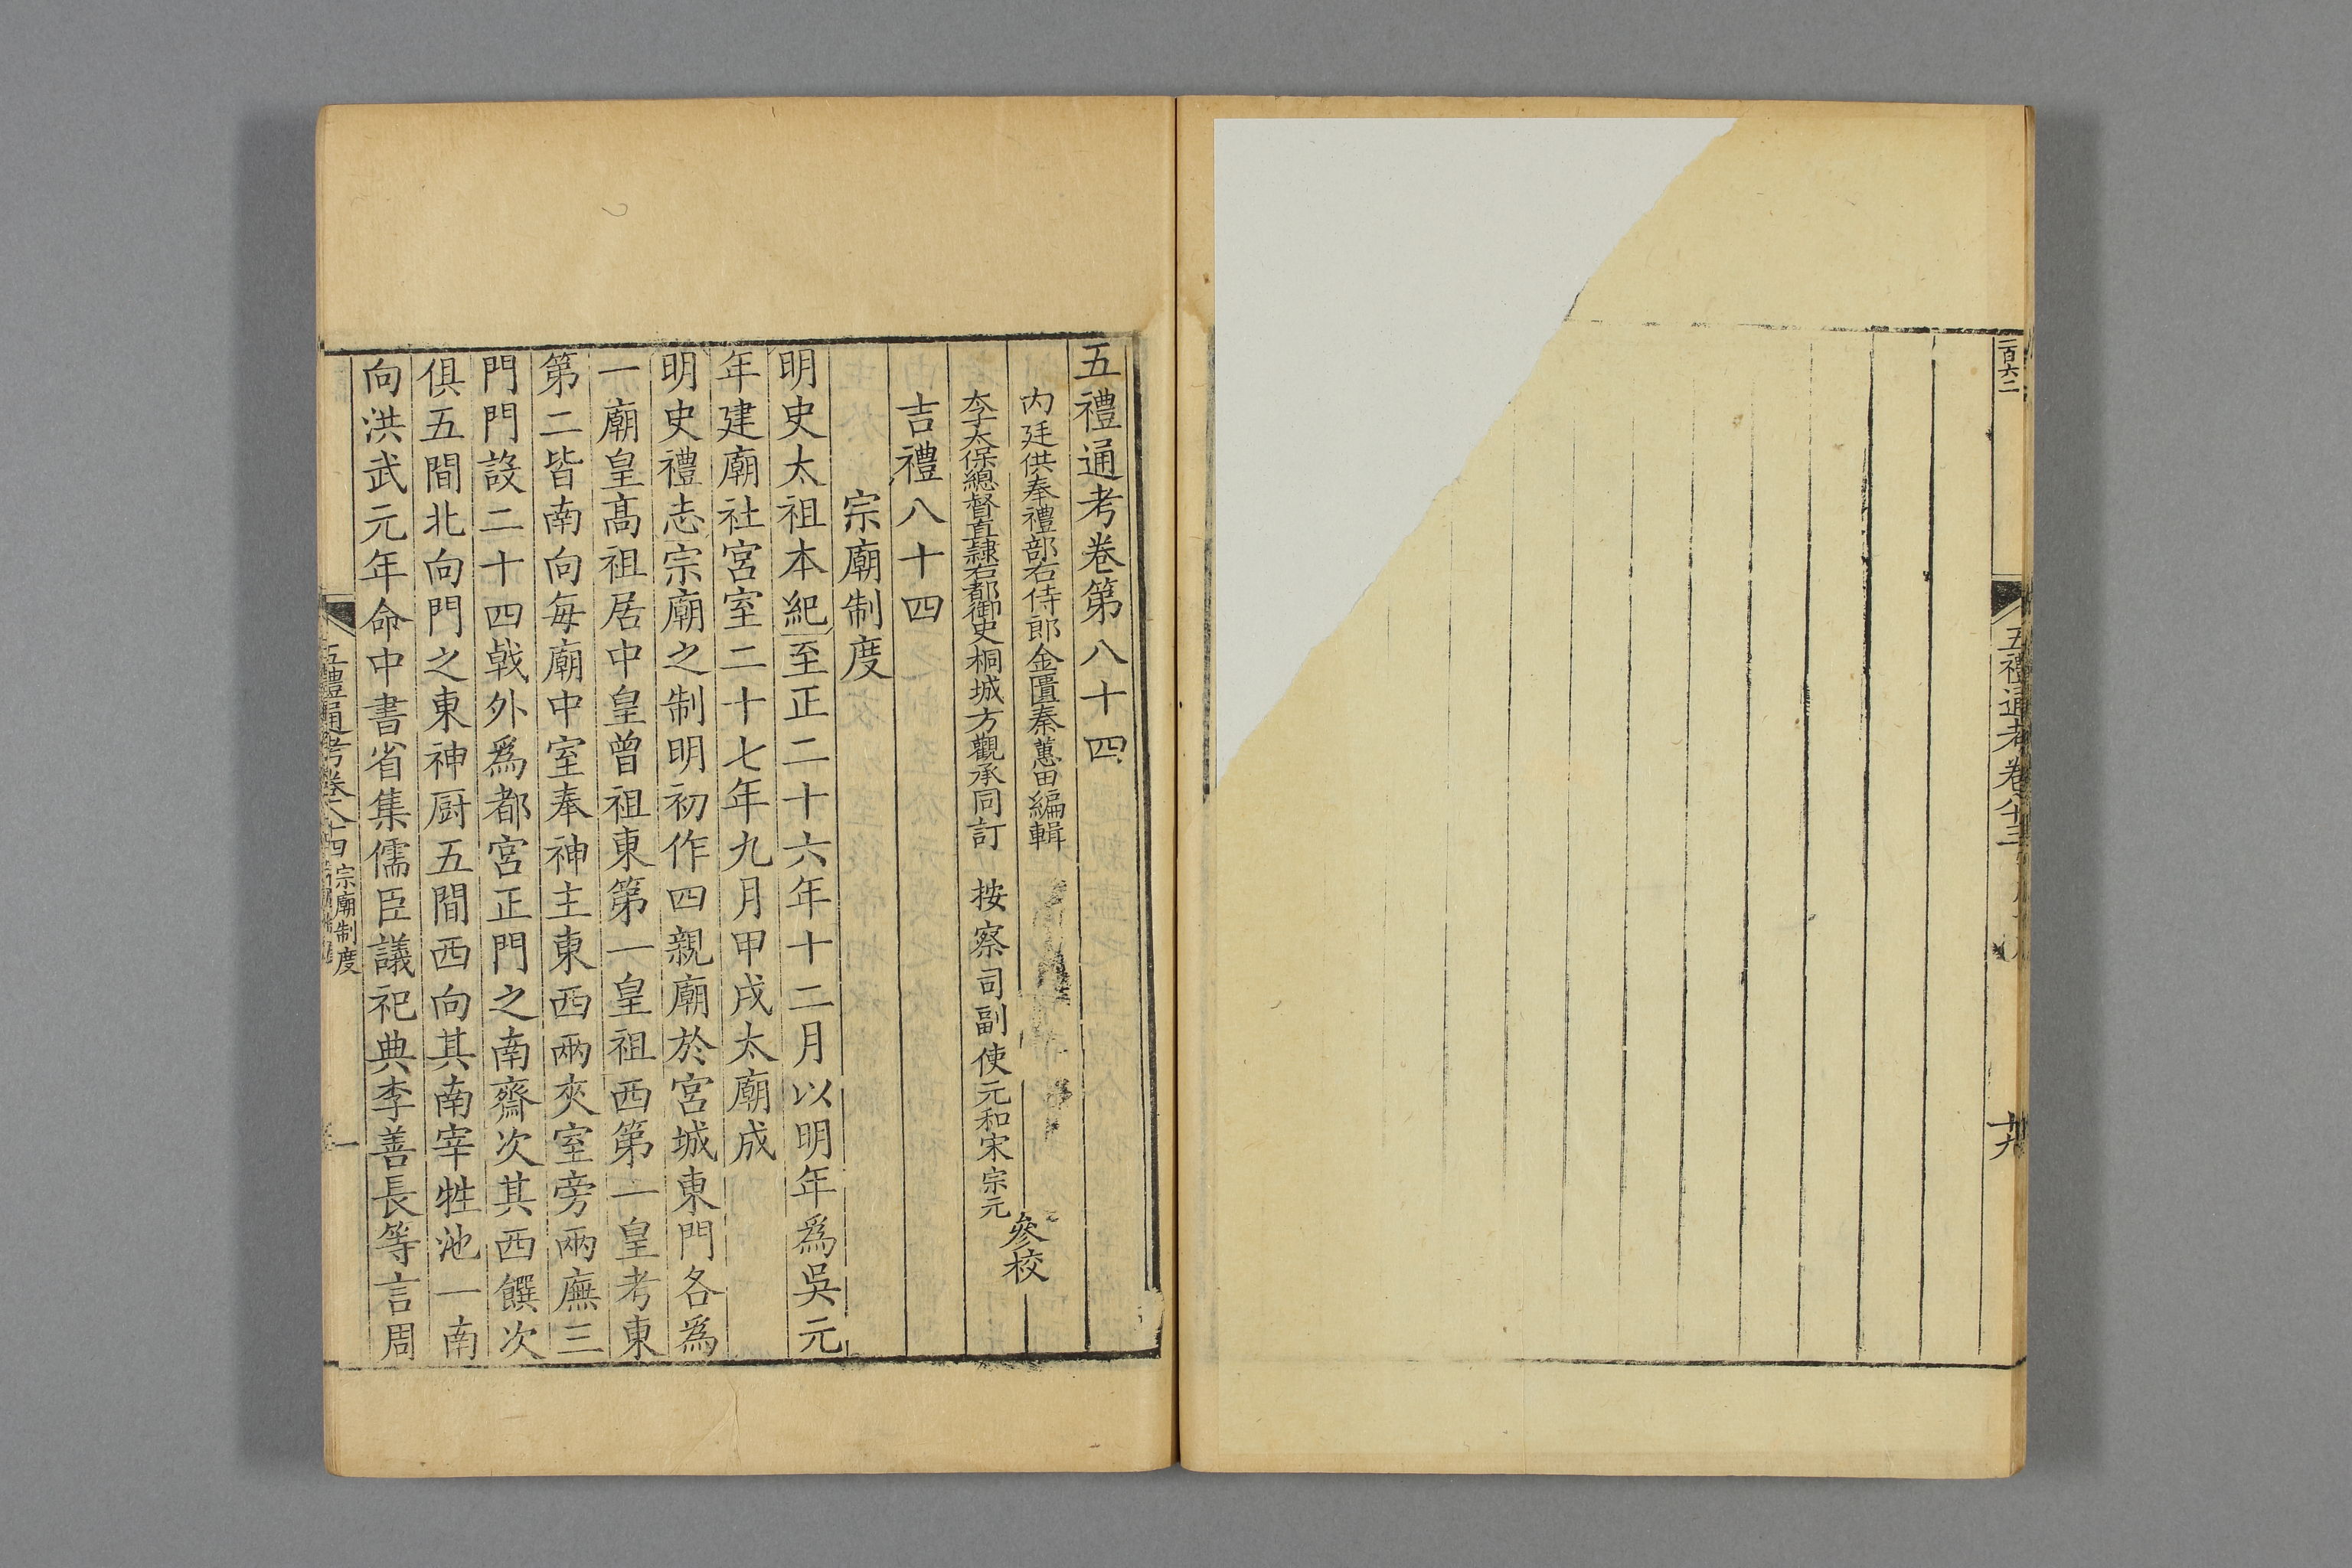 二百六二
五禮通考卷八十三
十九
五禮通考卷第八十四
內廷供奉禮部右侍郎金匱秦蕙田編輯
太子太保總督直隸右都御史桐城方觀承同訂
按察司副使元和宋宗元
參校
吉禮八十四
宗廟制度
明史太祖本紀至正二十六年十二月以明年爲吳元
年建廟社宮室二十七年九月甲戌太廟成
明史禮志宗廟之制明初作四親廟於宮城東門各爲
一廟皇高祖居中皇曾祖東第一皇祖西第一皇考東
第二皆南向每廟中室奉神主東西兩夾室旁兩廡三
門門設二十四戟外爲都宮正門之南齋次其西饌次
俱五間北向門之東神厨五間西向其南宰牲池一南
向洪武元年命中書省集儒臣議祀典李善長等言周
五禮通考卷八十四
宗廟制度
一